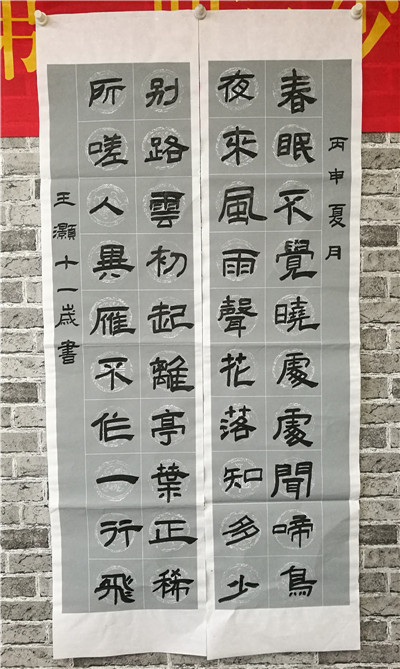 丙申夏月
春眠不覺曉處處聞啼鳥
夜來風雨聲花落知多少
别路雲初起離亭葉正稀
所嗟人異雁不作一行飛
王灝十一歲書